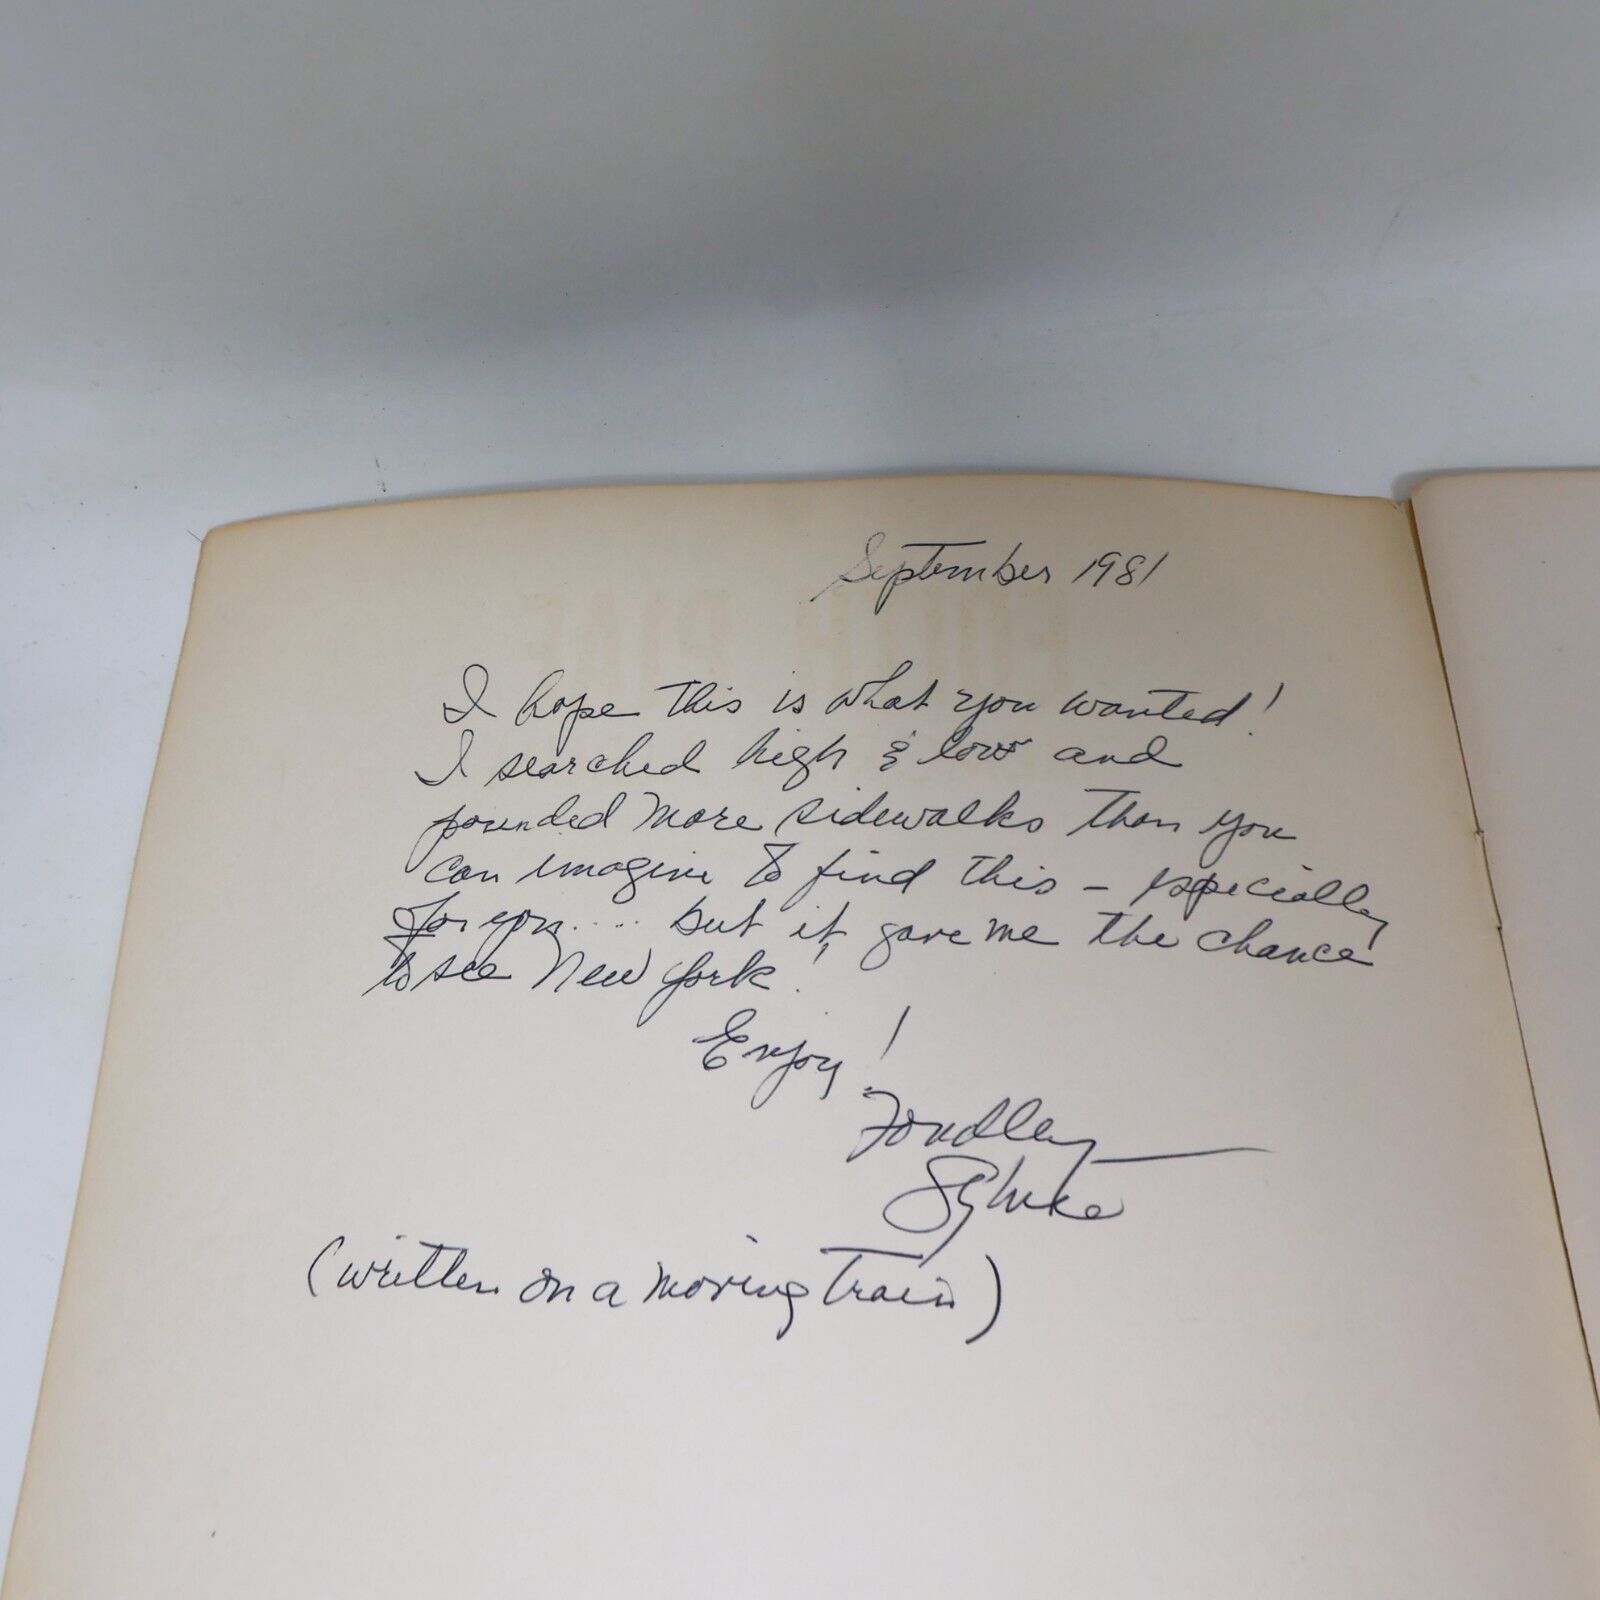 September 1981
I hope this is what you wanted!
I searched high & low and
pounded more sidewalks than you
can imagine to find this – especially
for you.... but it gave me the chance
to see New York!
Enjoy!
Fondley
(written on a moving train)